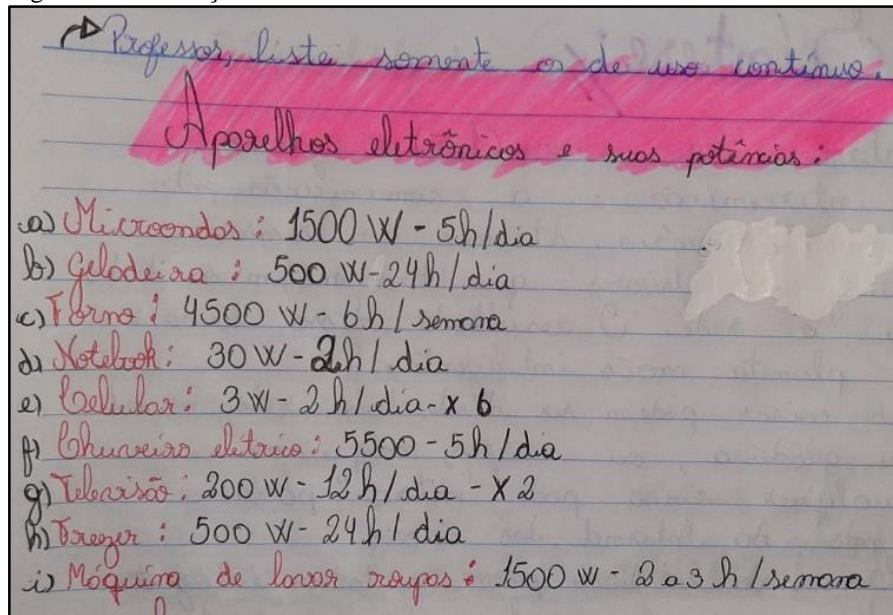 Professor, listei somente os de uso contínuo.
Aparelhos eletrônicos e suas potências:
a) Microondas: 1500 W - 5h/dia
b) Geladeira: 500 W - 24h/dia
c) Forno: 4500 W - 6h/semana
d) Notebook: 30 W - 2h/dia
e) Celular: 3 W - 2h/dia - x 6
f) Chuveiro elétrico: 5500 - 5h/dia
g) Televisão: 200 W - 12h/dia - x 2
h) Freezer: 500 W - 24h/dia
i) Máquina de lavar roupas: 1500 W - 2 a 3 h/semana